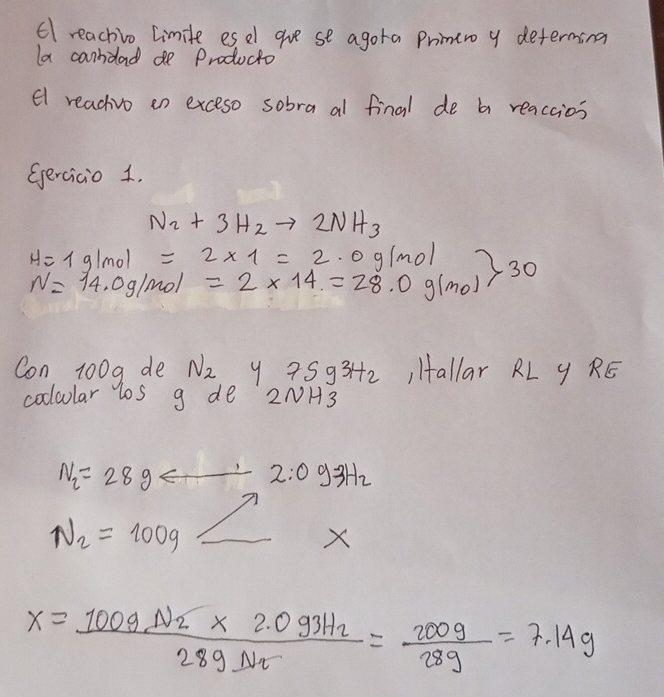 El reactivo Limite es el que se agota Primero y determina
la cantidad de Producto
El reactivo en exceso sobra al final de la reacción
Ejercicio 1.
N2 + 3H2 → 2NH3
H= 1 g/mol = 2 x 1 = 2.0 g/mol
N= 14.0g/mol = 2 x 14. = 28.0 g/mol } 30
Con 100g de N2 y 75g3H2 , Hallar RL y RE
calcular los g de 2NH3
N2= 28g ← 2.0 g3H2
N2 = 100g X
X = 100g N2 x 2.0 g3H2 / 28g N2 = 200g / 28g = 7.14g